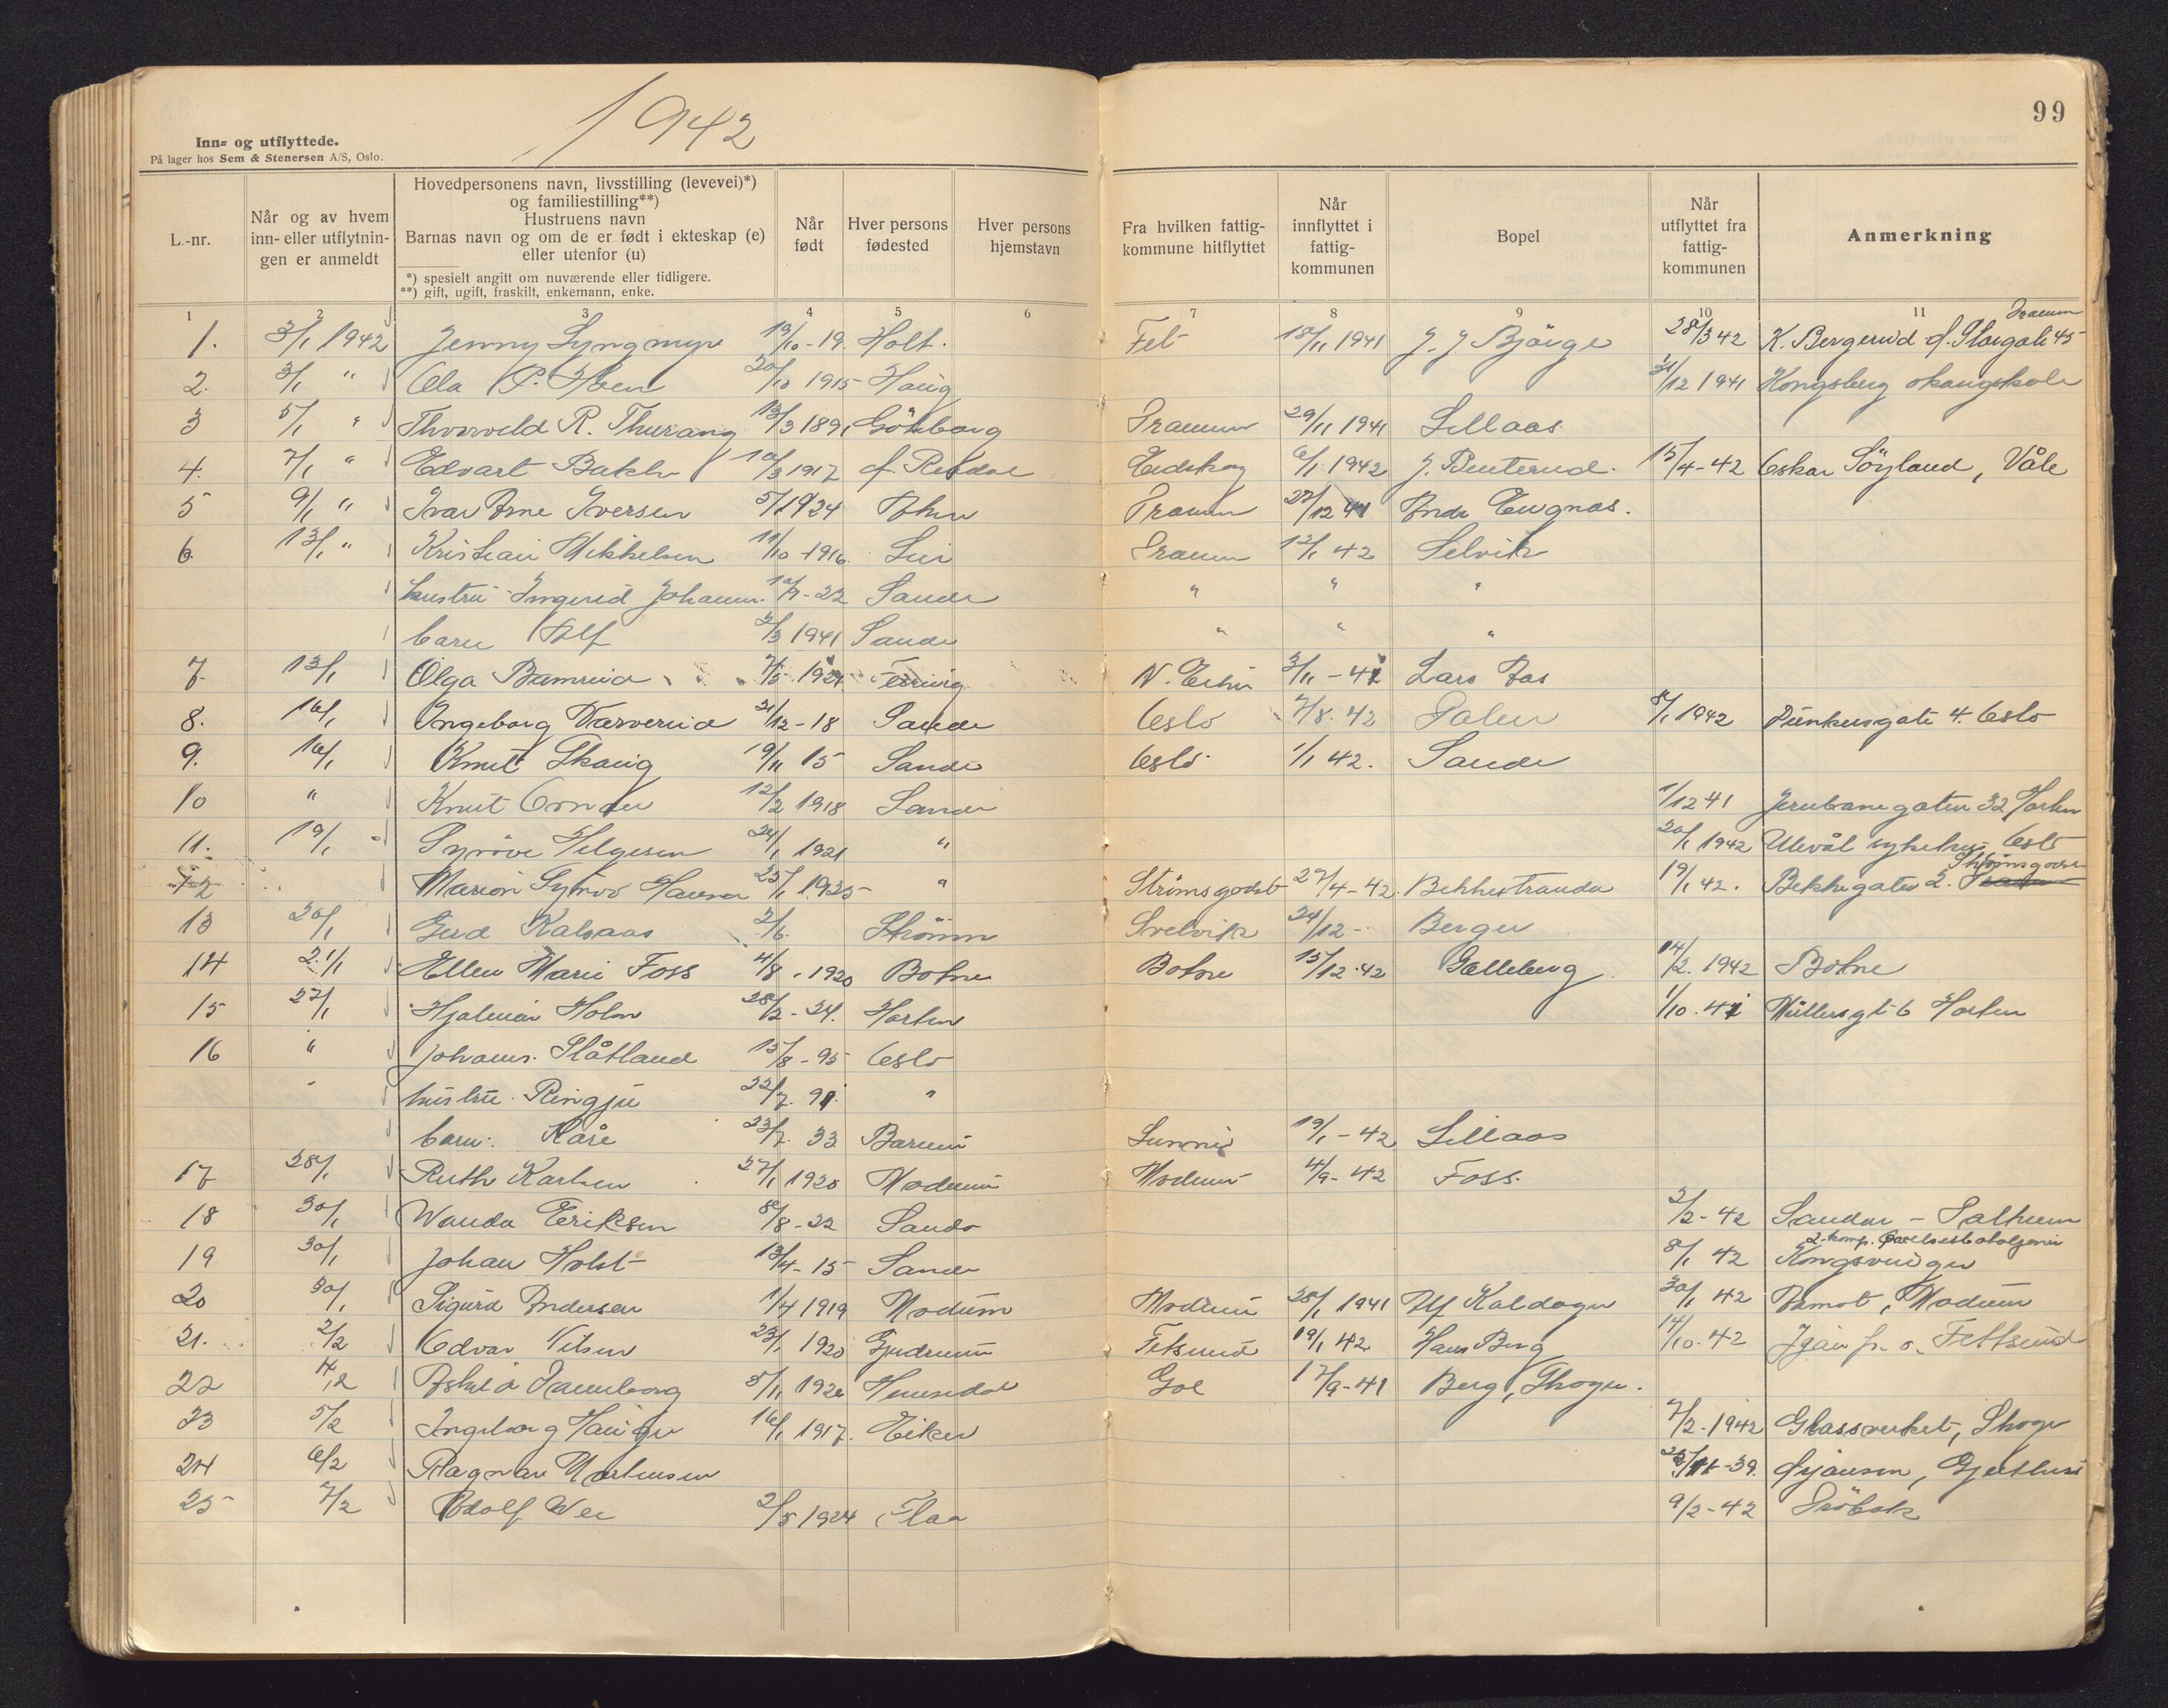 1942
99
Inn- og utflyttede.
På lager hos Sem & Stenersen A/S, Oslo.
L.-nr.
Når og av hvem inn- eller utflytningen er anmeldt
Hovedpersonens navn, livsstilling (levevei)*)
og familiestilling**)
Hustruens navn
Barnas navn og om de er født i ekteskap (e)
eller utenfor (u)
*) spesielt angitt om nuværende eller tidligere.
**) gift, ugift, fraskilt, enkemann, enke.
Når født
Hver persons fødested
Hver persons hjemstavn
Fra hvilken fattigkommune hitflyttet
Når innflyttet i fattigkommunen
Bopel
Når utflyttet fra fattigkommunen
Anmerkning
1 2 3 4 5 6 7 8 9 10 11
1. 3/1 1942 Jenny Lyngmyr 19/10-19. Holt. Fet 18/11 1941 J. J Bjørge 28/3 42 K. Bergerud Storgate 45 Dramm
2. 3/1 " Ola P. Hoen 20/10 1915 Haug 31/12 1941 Kongsberg skougskole
3 5/1 " Thorvald R. Thurang 13/3 1891 Göteborg Drammen 29/11 1941 Lillaas
4. 7/1 " Edvart Bakken 10/3 1917 Eidskog 6/1 1942 J. Buterud. 15/4-42 Oskar Söyland, Våle
5 9/1 " Ivar Arne Iversen 5/1 1924 Drammen 27/12 41 Engnæs.
6. 13/1 " Kristian Mikkelsen 11/10-1916. Lier Drammen 12/1 42 Selvik
hustru Ingerid Johanne. 10/7-22 Sande " " "
barn Alf 2/3 1941 Sande " " "
7. 13/1 Olga Bamrud 7/5 1924 N. Eiker 3/11-41 Lars Aas
8. 16/1 Ingeborg Varverud 21/12-18 Sande Oslo 7/8.42 8/1 1942 Munkersgate 4. Oslo
9. 16/1 Knut Skaug 19/11 15 Sande Oslo. 1/1 42. Sande
10 " Knut 12/2 1918 Sande 1/12 41 Jernbanegaten 32 Horten
11. 19/1 Synöve Helgesen 24/1 1921 " 20/1 1942 Ulevål sykehus Oslo
12 Marion Synöve Hansen 25/1 1925 " Strömsgodset 27/4-42. Bekkestranda 19/1 42. Bekkegaten 2. Strömsgodset
13 20/1 Gerd Kalsaas 2/6. Strömm Svelvik 24/12- Berger
14 21/1 Ellen Marie Foss 4/8-1920 Botne Botne 15/12.42 Galleberg 14/2.1942 Botne
15 27/1 Hjalmar Holm 28/2-24. Horten 1/10.41 Müllersgt 6 Horten
16 " Johannes Slåtland 15/8-95 Oslo
hustru Ringju 22/7.91. "
barn: Kåre 23/7.33 Bærum Lunner 19/1-42 Lillaas
17 28/1 Ruth Karlsen 27/1 1920 Modum Modum 4/9-42 Foss.
18 30/1 Wanda Eriksen 8/8-22 Sande 2/2-42 Sandar
19 30/1 Johan Holst 13/4-15 Sande 8/1 42 2. komp. Kongsvinger
20 30/1 Sigurd Andersen 1/4 1919 Modum Modum 28/1 1941 Alf Kaldager 30/1 42 Åmot, Modum
21. 2/2 Edvar Nilsen 23/1 1920 Gjerdrum Fetsund 19/1 42 Hans Berg 14/10.42 Fettsund
22 4/2 Hemsedal Gol 17/9-41 Berg, Skoger.
23 5/2 Ingeborg Hauger 16/1 1917. Eiker 7/2-1942 Glassverket, Skoger
24 6/2 Ragnar Martinsen -39. Gjethus
25 7/2 Adolf Wee 2/5 1924 Flaa 9/2-42 Dröbak